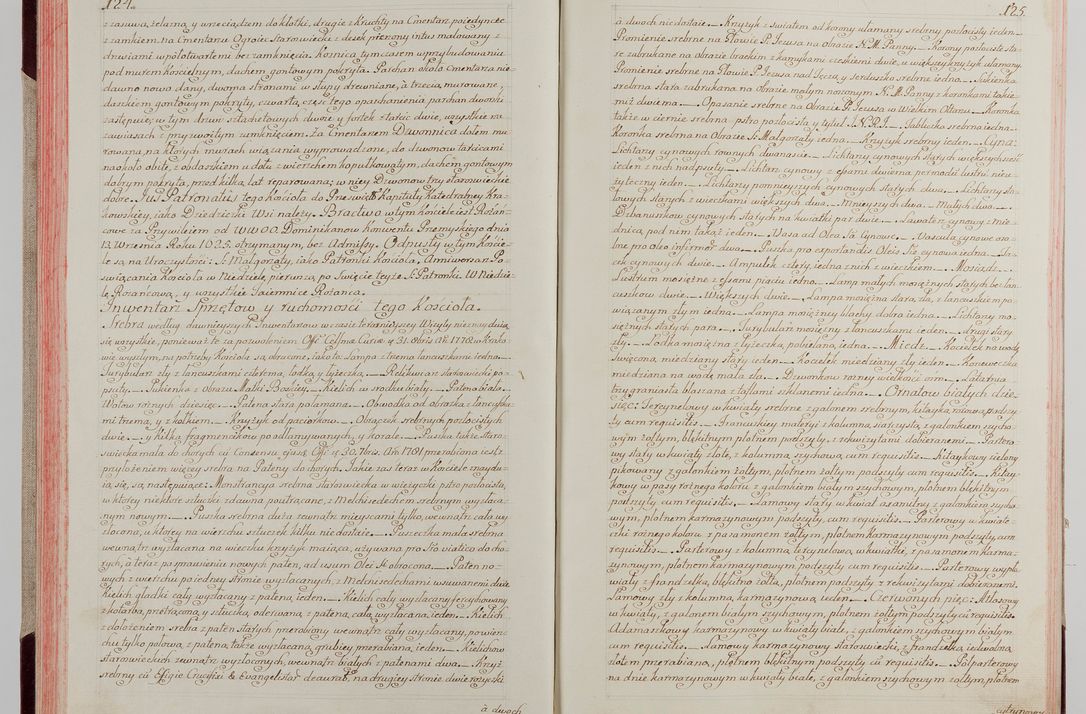 124.
z zasuwą żelazną y wrzeciądzem do kłotki, drugie z Kruchty na Cmentarz poiedyncze
z zamkiem. Na Cmentarzu Ogroiec Starowiecki z desek pierzony intus malowany z
drzwiami wpół otwartemi bez zamknięcia. Kosnica tymczasem w przybudowaniu
pod murem kościelnym, dachem gontowym pokryta. Parchan około Cmentarza nie=
dawno nowo dany, dwoma stronami w słupy drewniane, a trzecią murowane,
daszkiem gontowym pokryty, czwartą część tego oparchanienia parchan dworski
zastępuie; w tym drzwi sztachetowych dwoie y fortek także dwie, wszystkie na
zawiasach z przyzwoitym zamknięciem. Za Cmentarzem Dzwonnica dołem mu=
rowana, na ktorych murach wiązania wyprowadzone, do dzwonow tarcicami
naokoło obite, z obdaszkiem u dołu z wierzchem kopułkowatym, dachem gontowym
dobrym pokryta, przed kilką lat reparowana; w niey Dzwonow trzy starowieckie
dobre. Jus Patronatus tego Kościoła do Prześwięt: Kapituły Katedralney Kra=
kowskiey, iako Dziedziczki Wsi należy. Bractwo w tym Kościele iest Rożań=
cowe za Przywileiem od WW OO. Dominikanow Konwentu Przemyskiego dnia
13. Września Roku 1625. otrzymanym, bez Admissyi. Odpusty w tym Koście=
le są na Uroczystość S. Małgorzaty, iako Patronki Kościoła, Anniwersarz Po=
święcania Kościoła w Niedzielę pierwszą po Święcie teyże S. Patronki. W Niedzie=
lę Rożańcową, y wszystkie Taiemnice Rożańca.
Inwentarz Sprzętow y ruchomości tego Kościoła.
Srebra według dawnieyszych Inwentarzow w czasie teraźnieyszey Wizyty nie znayduią
się wszystkie, ponieważ te za pozwoleniem Offi Celsma Curiae ej 31. 8bris Ao. 1778. w Krako=
wie, wyszłym, na potrzeby Kościoła są obrocone, iako to: Lampa z trzema łancuszkami iedna.
Turybularz zły z łancuszkami czterema, łodką, y łyżeczką. Relikwiarz starowiecki po=
psuty. Sukienka z obrazu Matki Boskiey. Kielich w srodku biały. Patena biała.
Wotow rożnych dziesięć. Patena stara połamana. Obwodka od obrazka z łancuszka=
mi trzema, y z kołkiem. Krzyżyk od paciorkow. Obrączek srebrnych pozłocistych
dwie. y kilka fragmencikow poodłamywanych, y korale. Puszka także staro=
świecka mała do chorych cui Consensu ejusd: Offi ej 30. 7bris. Ao. 1781 przerobiona iest z
przyłożeniem więcey srebra na Pateny do chorych. Jakie zas teraz w Kościele znaydu=
ią się, są następuiące: Monstrancya srebrna starowiecka w wieżyczki pstro pozłocista,
w ktorey niektore sztuczki zdawna poutrącane, z Melchisedechem srebrnym wyzłaca=
nym nowym. Puszka srebrna duża zewnątrz mieyscami tylko, wewnątrz cała wy=
złocona, u ktorey na wierzchu sztuczek kilku nie dostaie. Puszeczka mała srebrna
wewnątrz wyzłacana na wieczku krzyżyk maiąca, używana pro Sto viatico do cho=
rych, a teraz po sprawieniu nowych paten, ad usum Olei Sti obrocona. Paten no=
wych z wierzchu po iedney stronie wyzłacanych, z Melchisedechami wsuwanemi dwie.
Kielich gładki cały wyzłacany z pateną, ieden. Kielich cały wyzłacany ferychowany
z kolorbą, przetrącona, y sztuczką oderwaną, z pateną całą wyzłacaną ieden. Kielich
z dołożeniem srebra z paten starych przerobiony wewnątrz cały wyzłacany, powierz=
chu tylko połową, z pateną także wyzłacaną, grubiey przerabianą, ieden. Kielichow
starowieckich zewnątrz wyzłoconych, wewnątrz białych z patenami dwa. Krzyż
srebrny cu Effigie Crucifixi & Evangelistar deaurat na drugiey stronie dwie rożyczki
a dwoch
125.
a dwoch nie dostaie. Krzyżyk z światem od korony ułamany srebrny pozłocisty ieden.
Promienie srebrne na Głowie P. Jezusa na Obrazie N. M. Panny. Korony pozłociste sta=
re zubrukane na obrazie brackim z kamykami czeskiemi dwie, u większey krzyżyk ułamany.
Promienie srebrne na Głowie P. Jezusa nad Tęczą, y Serduszko srebrne iedno. Sukienka
srebrna stara zubrukana na Obrazie małym noszonym N. M. Panny z koronkami takie=
miż dwiema. Opasanie srebrne na Obrazie P. Jezusa w Wielkim Ołtarzu. Koronka
także w ciernie srebrna pstro pozłocista y tytuł I. N. R. I. Tabliczka srebrna iedna.
Koronka srebrna na Obrazie S. Małgorzaty iedna. Krzyżyk srebrny ieden. Cyna:
Lichtarzy cynowych rownych dwanaście. Lichtarzy cynowych starych większych sześć
ieden z nich nadpsuty. Lichtarz cynowy z cęgami dwiema per modum lustri nieu=
żyteczny ieden. Lichtarzy pomnieyszych cynowych starych dwa. Lichtarzy sto=
łowych starych z wieczkami większych dwa. Mnieyszych dwa. Małych dwa.
Dzbanuszkow cynowych starych na kwiatki par dwie. Lawaterz cynowy z mie=
dnicą pod nim takąż ieden. Vasa ad Olea Sta Cynowe. Vascula cynowe oso=
bne pro Oleo infirmor dwa. Puszka pro exportandis Oleis Stis cynowa iedna. Ta=
cek cynowych dwie. Ampułek cztery, iedna z nich z wieczkiem. Mosiądz.
Lustrum mosiężne z cęgami pięciu iedno. Lamp małych mosiężnych starych bez łan=
cuszkow dwie. Większych dwie. Lampa mosiężna stara, zła, z łancuszkiem po=
wiązanym złym iedna. Lampa mosiężney blachy dobra iedna. Lichtarzy mo=
siężnych starych para. Turybularz mosiężny z łancuszkami ieden. drugi stary
zły. Łodka mosiężna z łyżeczką pobielana, iedna. Miedź. Kociełek na wodę
święconą miedziany stary ieden. Kociełek miedziany zły ieden. Koneweczka
miedziana na wodę mała zła. Dzwonkow rożney wielkości osm. Latarnia
trzygraniasta blaszana z taflami szklanemi iedna. Ornatow białych dzie=
sięć: Tercynelowy w kwiaty srebrne z galonem srebrnym, kitayką rożową podszy=
ty cum requisitis. Francuskiey materyi z kolumną siarczystą, z galonkiem szycho=
wym żołtym, błękitnym płotnem podszyty, z rekwizytami dobieranemi. Parto=
wy stary w kwiaty złote, z kolumną szychową, cum requisitis. Kitaykowy zielony
pikowany z galonkiem żołtym, płotnem żołtym podszyty cum requisitis. Kitay=
kowy w pasy rożnego koloru z galonkiem białym szychowym, płotnem błękitnym
podszyty, cum requisitis. Lamowy stary, w kwiat axamitny z galonkiem szycho=
wym, płotnem karmazynowym podszyty, cum requisitis. Parterowy w kwiate=
czki rożnego koloru z pasamonem żołtym, płotnem karmazynowym podszyty, cum
requisitis. Parterowy z kolumną tercynelową, w kwiatki, z pasamonem karma=
zynowym, płotnem karmazynowym podszyty cum requisitis. Parterowy wypł=
wiały z frandzelką błękitno żołtą, płotnem podszyty z rekwizytami dobieranemi.
Lamowy zły z kolumną karmazynową, ieden. Czerwonych pięć: Atłasowy
w kwiaty, z galonem białym szychowym, płotnem żołtym podszyty cu requisitis.
Adamaszkowy karmazynowy w kwiaty białe, z galonkiem szychowym białym
cum requisitis. Lamowy karmazynowy starowiecki, z frandzelką iedwabną,
złotem przerabianą, płotnem błękitnym podszyty cu requisitis. Półparterowy
na dnie karmazynowym w kwiaty białe, z galonkiem szychowym żołtym, płotnem
cytrynowym